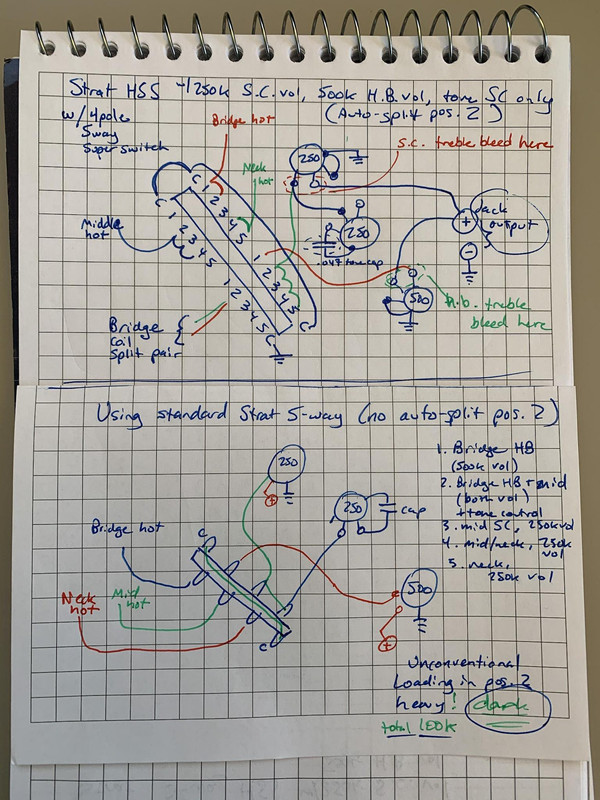 Strat HSS w/250k S.C. vol, 500k H.B. vol, tone SC only
w/ 4pole
(Auto-split pos. 2)
5way
Super switch
Bridge hot
S.C. treble bleed here
Neck hot
250
C
1
2
3
4
5
C
1
2
3
4
5
Middle hot
250
.047 tone cap
Jack output
+
-
1
2
3
4
5
C
1
2
3
4
5
C
500
H.B. treble bleed here
Bridge coil split pair
Using standard Strat 5-way (no auto-split pos. 2)
250
+
1. Bridge HB
(500k vol)
2. Bridge HB + mid
(both vol)
+tone control
3. mid SC, 250k vol
4. mid/neck, 250k vol
5. neck, 250k vol
250
cap
Bridge hot
C
Neck hot
Mid hot
500
C
+
Unconventional
Loading in pos. 2
heavy! dark
total 100k